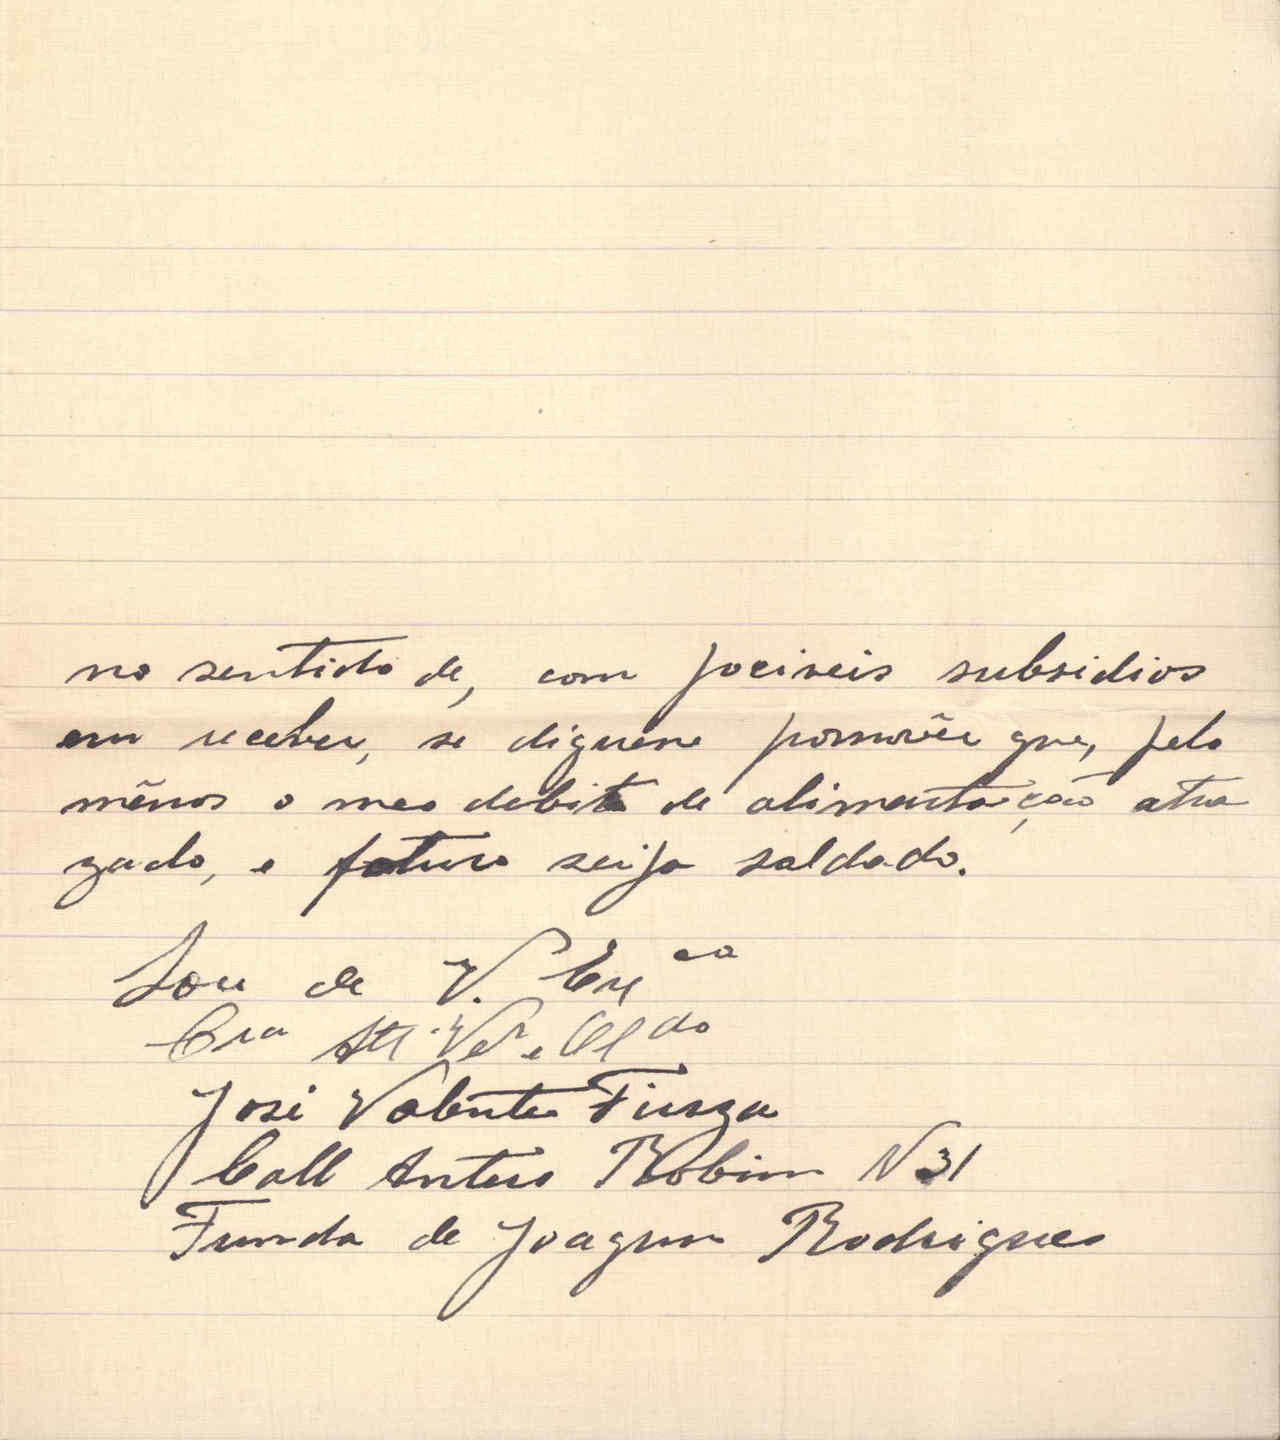 no sentido de, com pociveis subsidios
em receber, se diguene pormovêr que, pelo
mênos o meo debito de alimentação atra
zado, e foturo seija saldado.
Sou de V. Ex cia
Cro Att. Ver. e
José Valente Fiuza
Call Antero Robim N 31
Funda de Joaqun Rodrigues